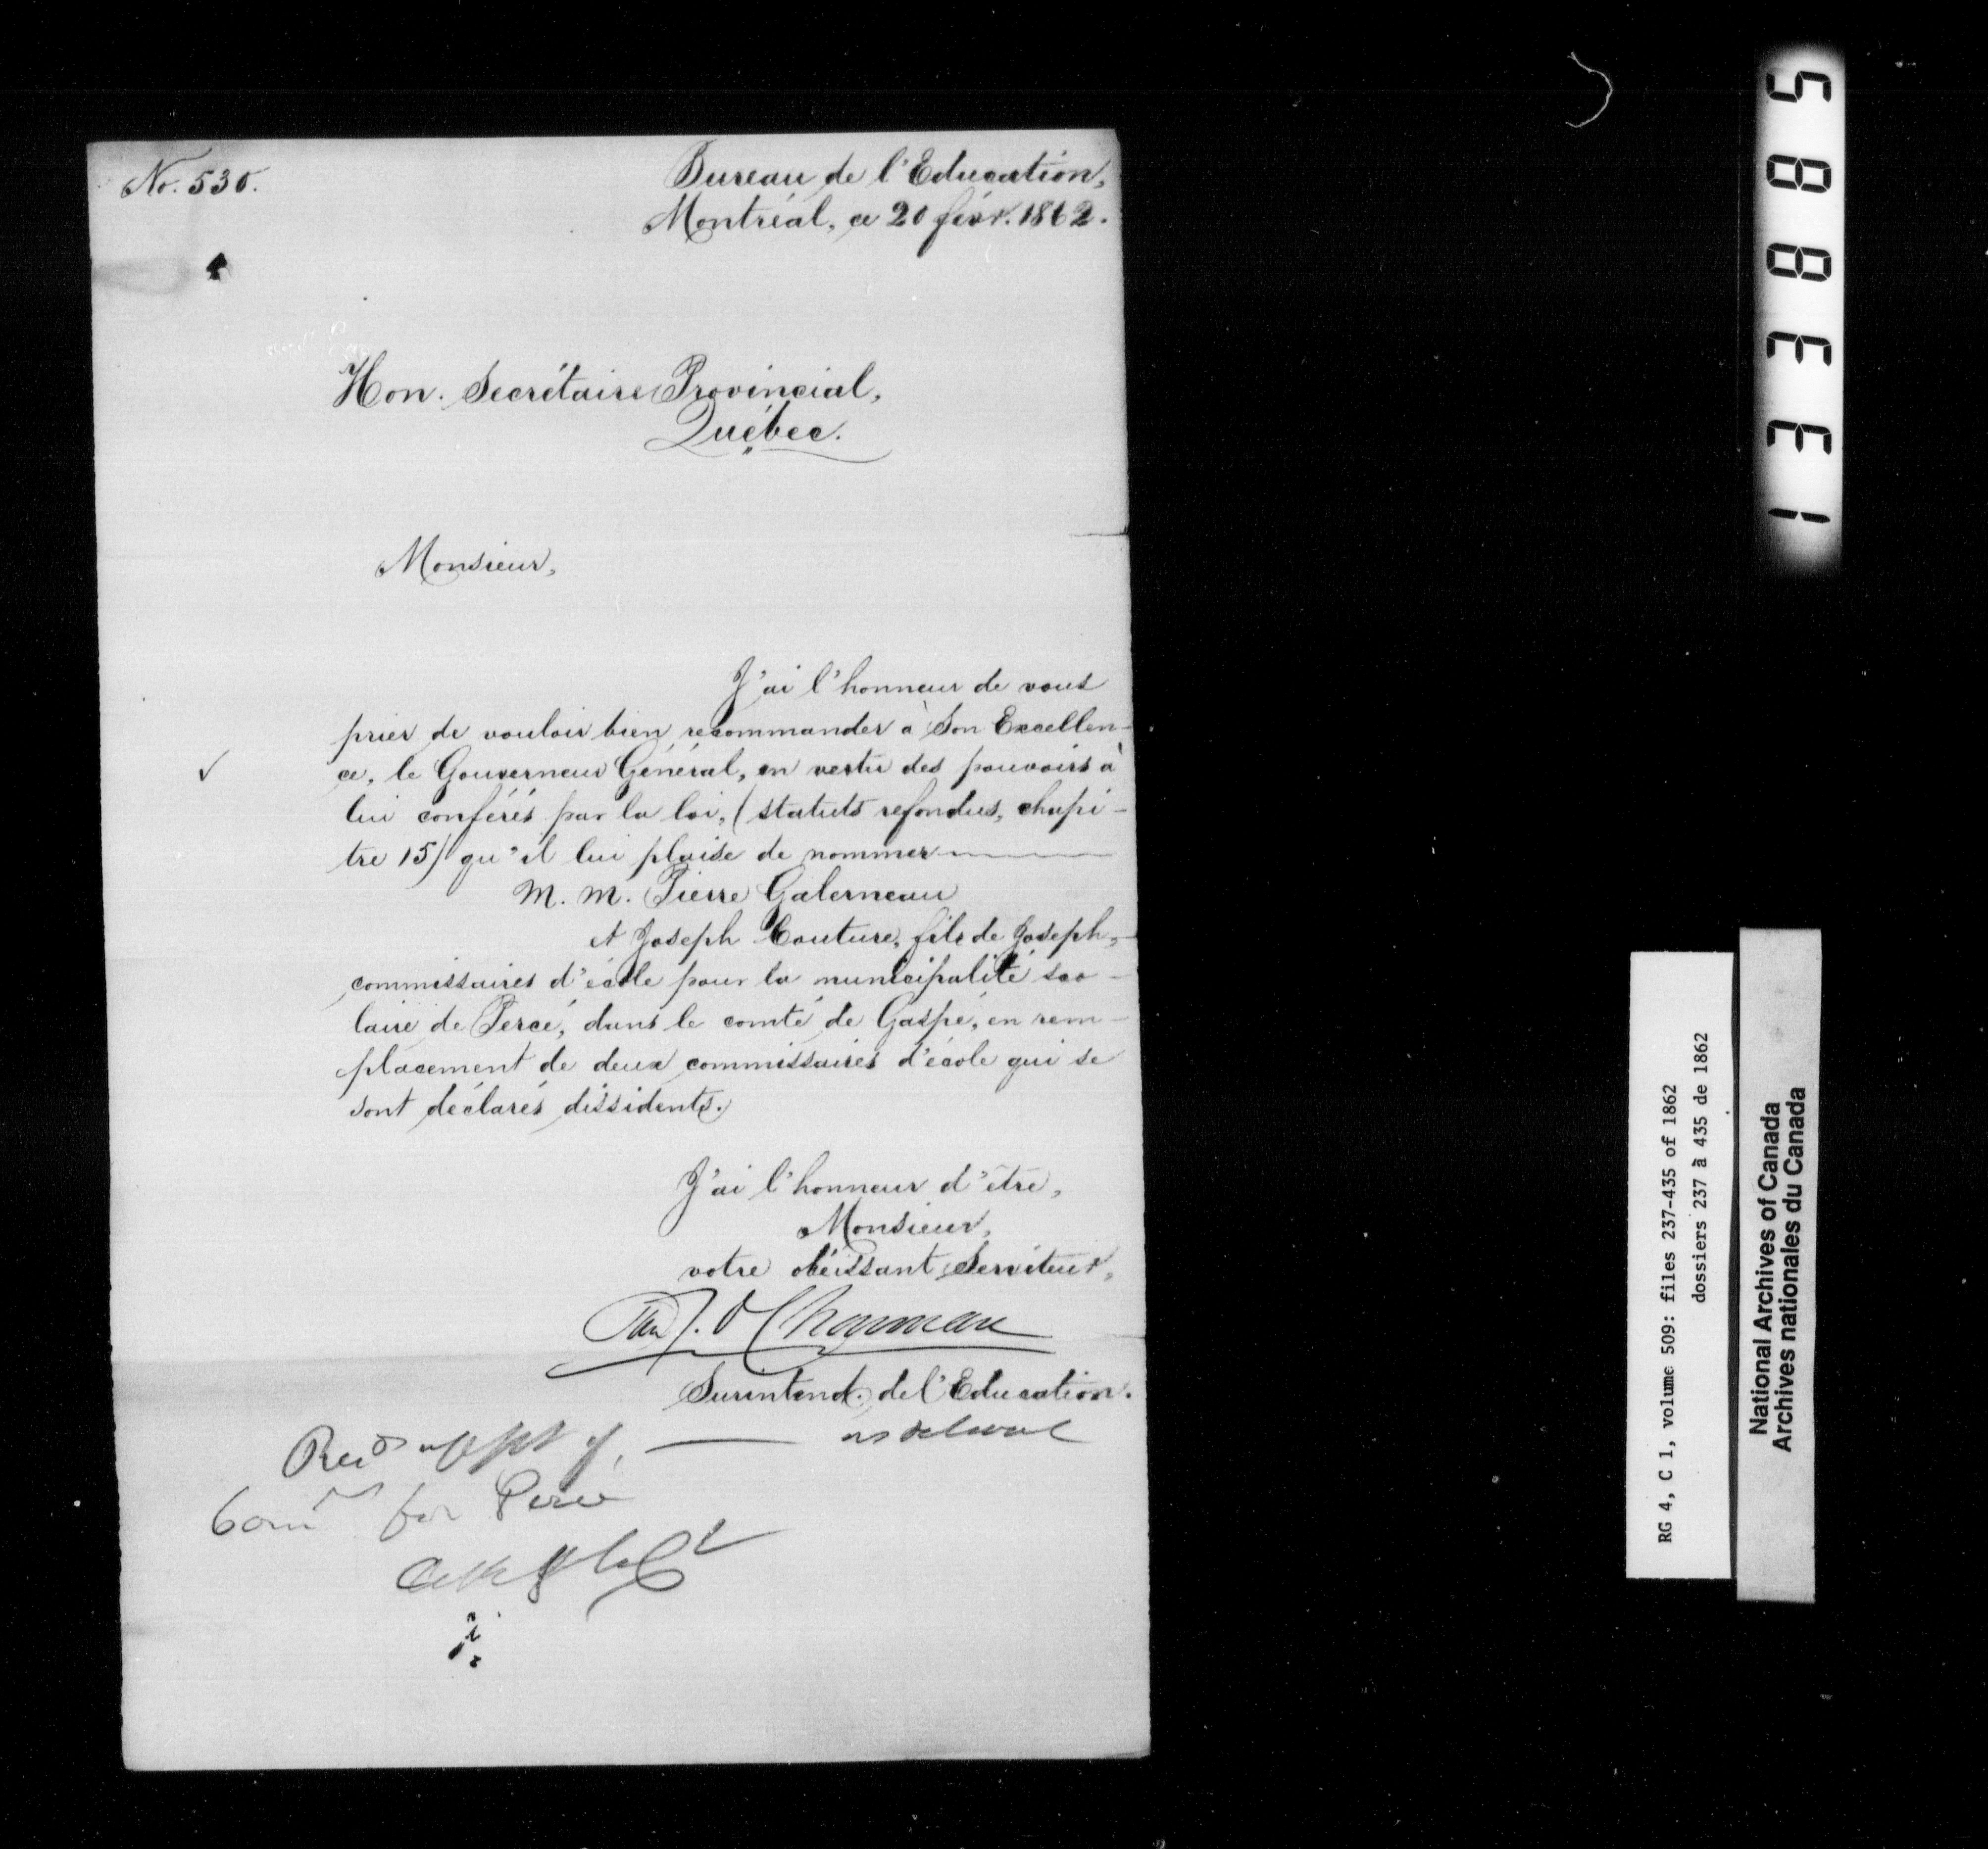 No. 530.
Bureau de l'Education,
Montréal, ce 20 févr. 1862.
Hon. Secrétaire Provincial,
Québec.
Monsieur,
J'ai l'honneur de vous
prier de vouloir bien recommander à Son Excellen-
ce, le Gouverneur Général, en vertu des pouvoirs à
lui conférés par la loi, (statuts refondus, chapi-
tre 15) qu'il lui plaise de nommer
M. M. Pierre Galerneau
et Joseph Couture, fils de Joseph,
commissaires d'école pour la municipalité sco-
laire de Percé, dans le comté de Gaspé, en rem-
placement de deux commissaires d'école qui se
sont déclarés dissidents.
J'ai l'honneur d'être,
Monsieur,
votre obéissant Serviteur,
Surintendt. de l'Education.
appt of as school
Comrs for Percé
133885
RG 4, C 1, volume 509: files 237-435 of 1862
dossiers 237 à 435 de 1862
National Archives of Canada
Archives nationales du Canada